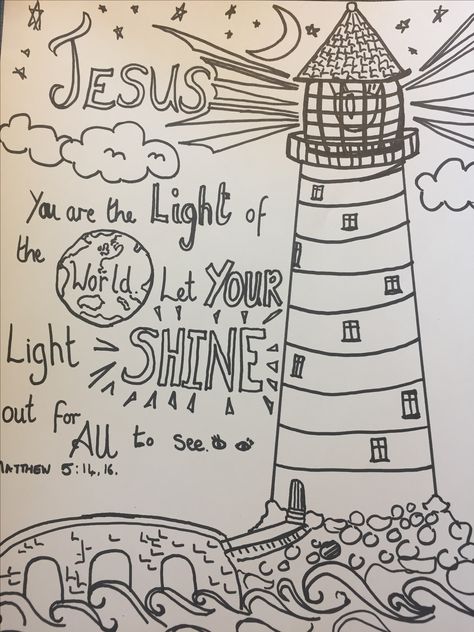 JESUS
You are the Light of
the World. Let YOUR
Light SHINE
out for All to see.
MATTHEW 5:14,16.